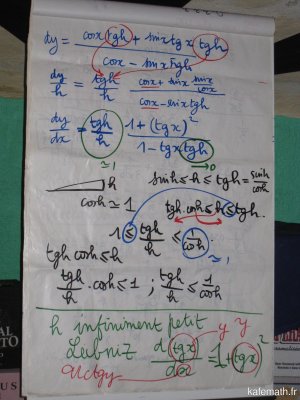 dy = (cosx tgh + sinx tgx tgh) / (cosx - sinx tgh)
dy/h = tgh/h (cosx + sinx sinx/cosx) / (cosx - sinx tgh)
dy/dx = tgh/h (1 + (tgx)²) / (1 - tgx tgh)
≃1 →0
h sinh ≤ h ≤ tgh = sinh/cosh
cosh ≃ 1 tgh·cosh ≤ h ≤ tgh.
1 ≤ tgh/h ≤ 1/cosh ≃1
tgh cosh ≤ h
tgh/h · cosh ≤ 1 ; tgh/h ≤ 1/cosh
h infiniment petit y y
Leibniz d(tgx)/dx = 1 + (tgx)²
kafemath.fr